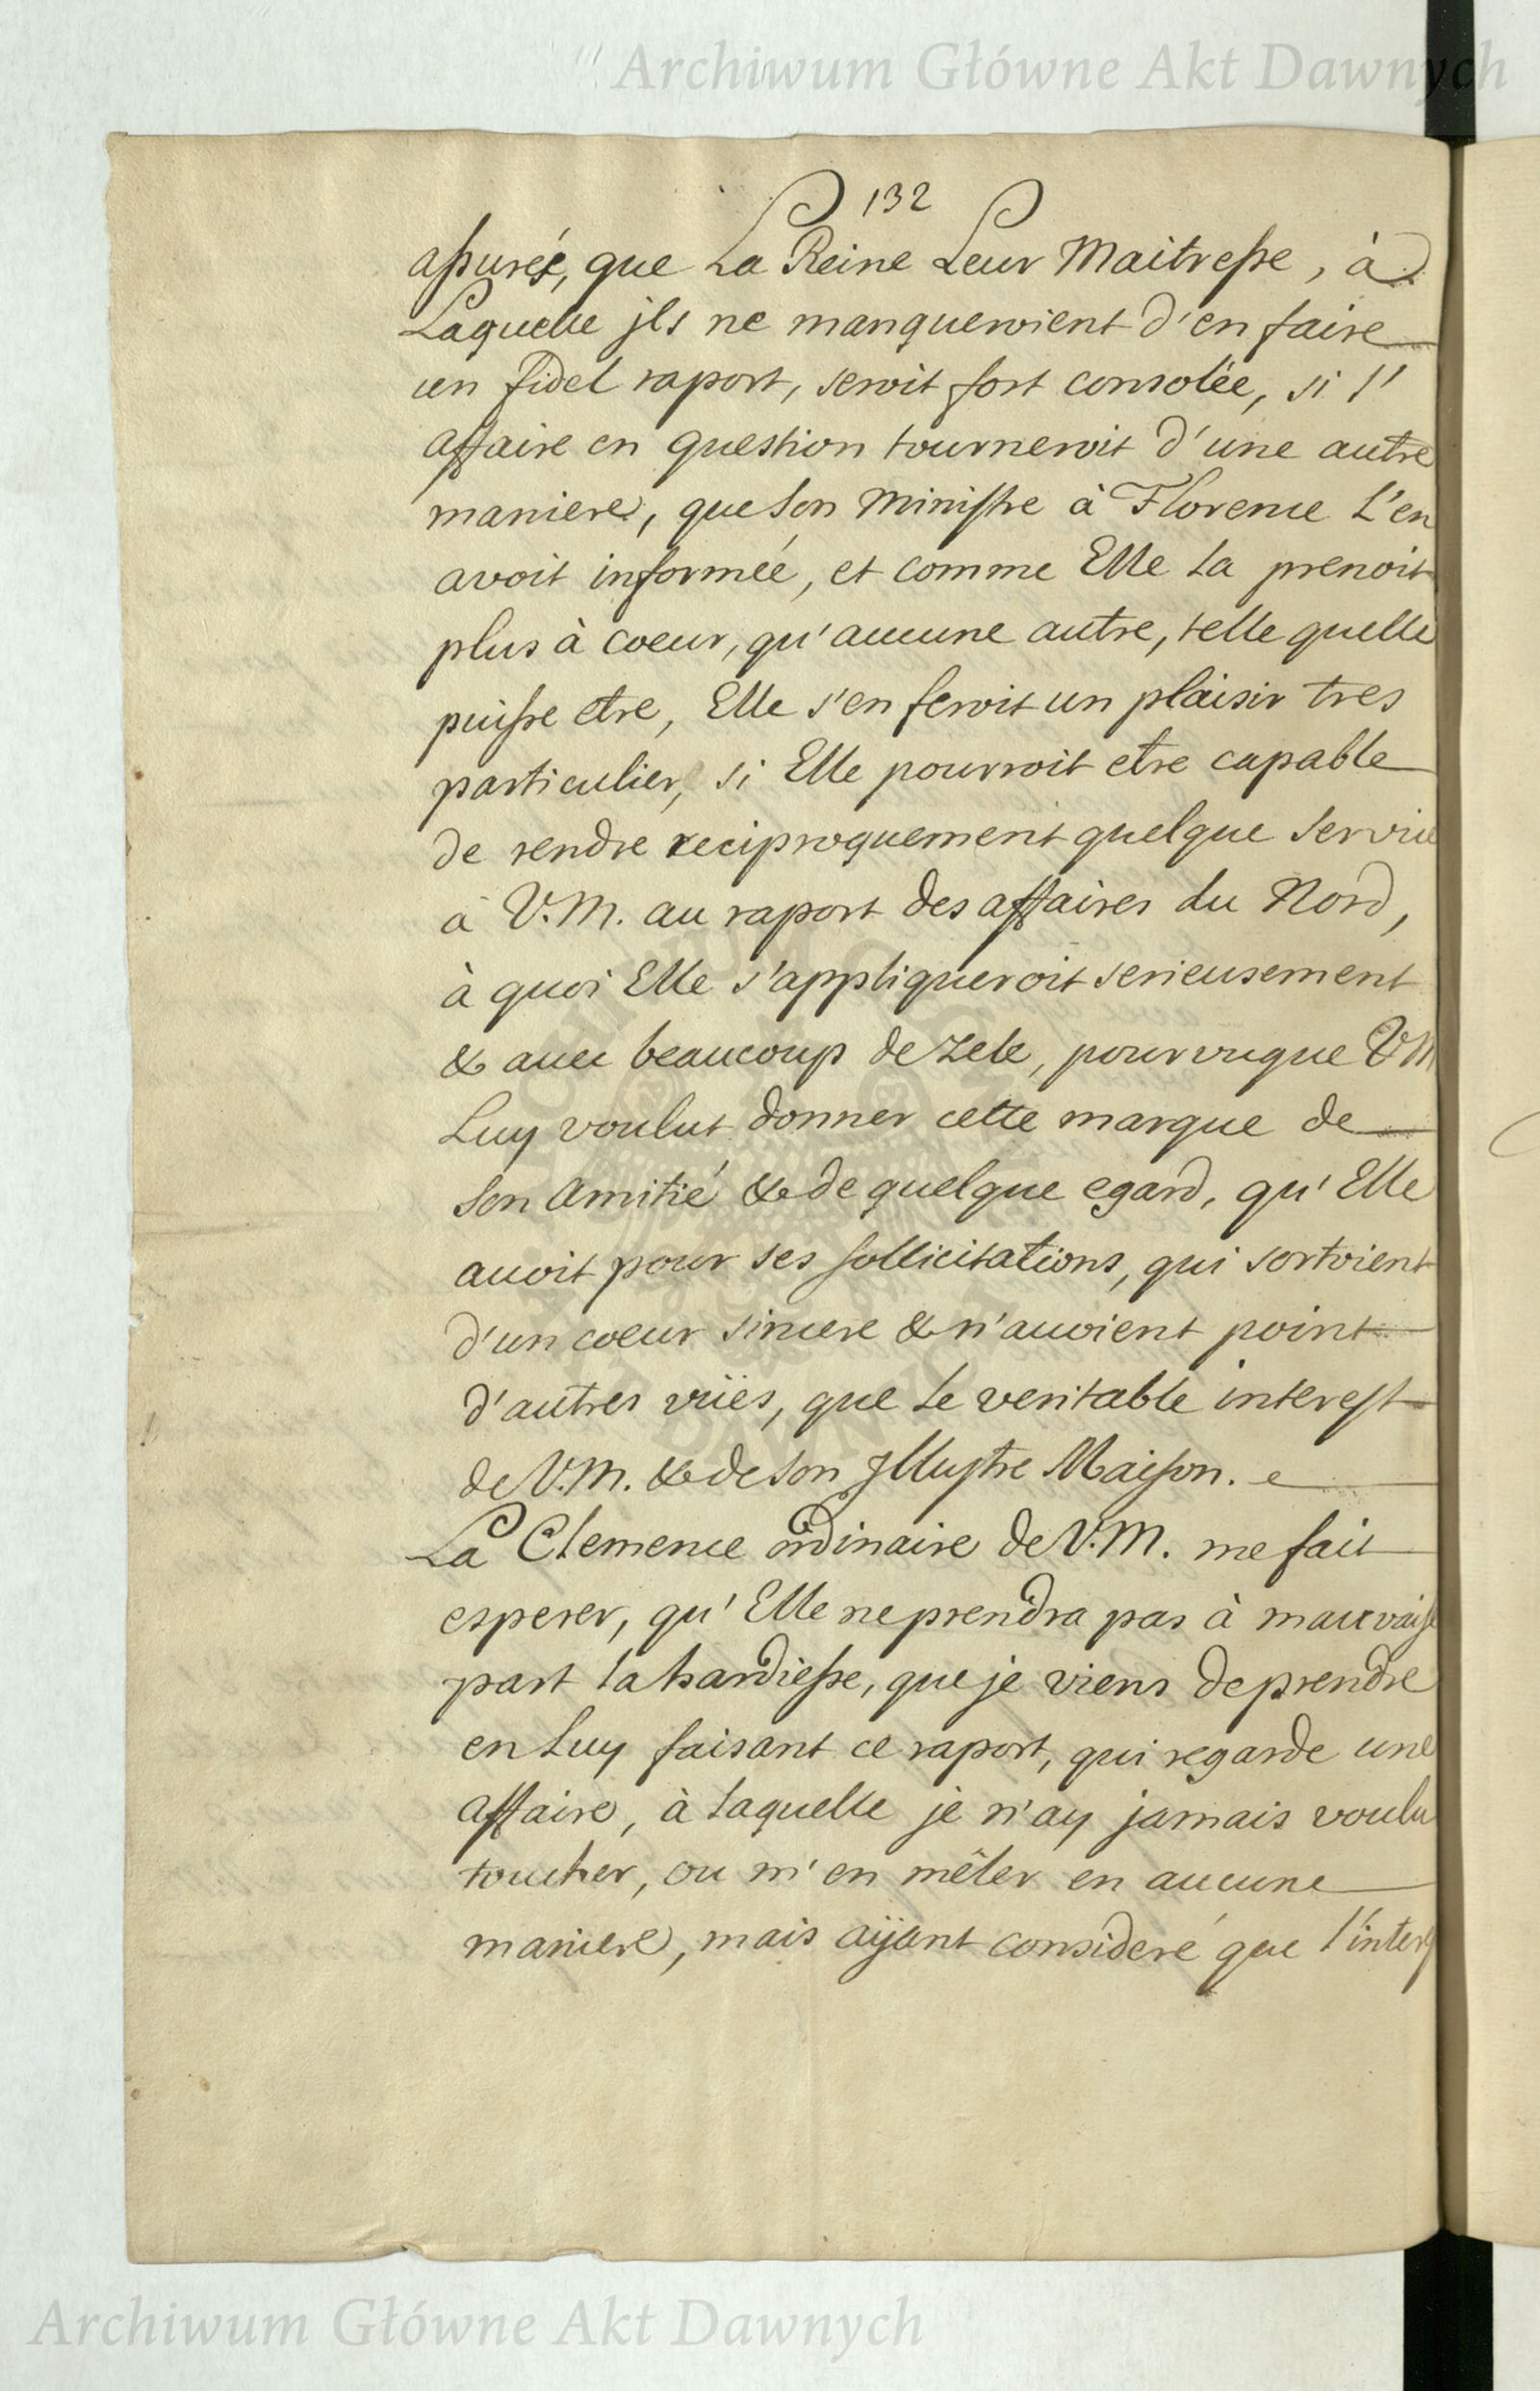 Archiwum Główne Akt Dawnych
132
assurés, que La Reine Leur Maitresse, à
Laquelle jls ne manqueroient d'en faire
un fidel raport, seroit fort consolée, si l'
affaire en question tourneroit d'une autre
maniere, que son Ministre à Florence L'en
avoit informéé, et comme Elle la prenoit
plus à coeur, qu'aucune autre, telle quelle
puisse etre, Elle s'en feroit un plaisir tres
particulier, si Elle pourroit etre capable
de rendre reciproquement quelque service
à V.M. au raport des affaires du Nord,
à quoi Elle s'appliqueroit serieusement
& avec beaucoup de zele, pourvuque VM
Luy voulut donner cette marque de
son Amitié & de quelque egard, qu'Elle
auoit pour ses sollicitations, qui sortoient
d'un coeur sincere & n'auoient point
d'autres vüës, que le veritable interest
de V.M. & de son Jllustre Maison.
La Clemence ordinaire de V.M. me fait
esperer, qu'Elle ne prendra pas à mauvaise
part la hardiesse, que je viens de prendre
en Luy faisant ce raport, qui regarde une
affaire, à laquelle je n'ay jamais voulu
toucher, ou m'en mêler en aucune
maniere, mais aÿant consideré que l'interest
Archiwum Główne Akt Dawnych